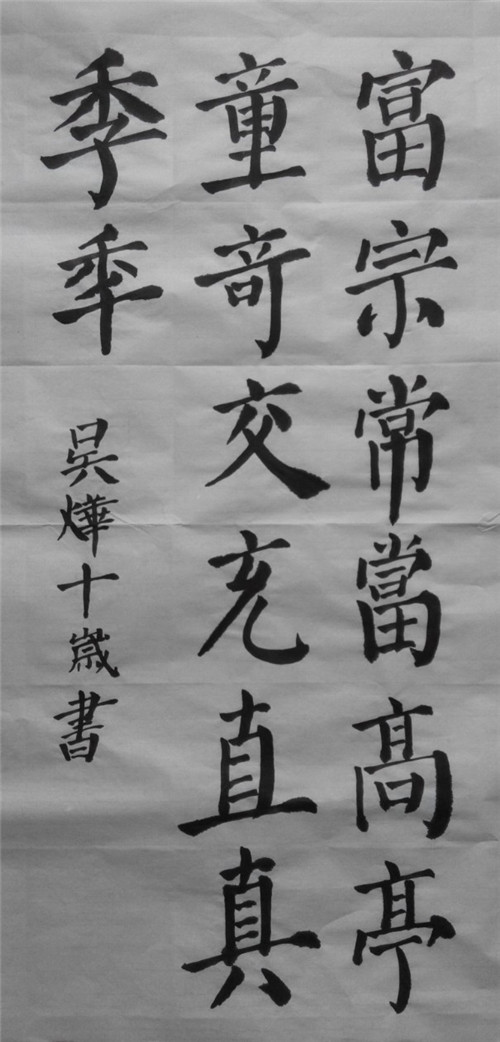 富宗常當髙亭
童奇交充直真
季秊
吳燁十歲書